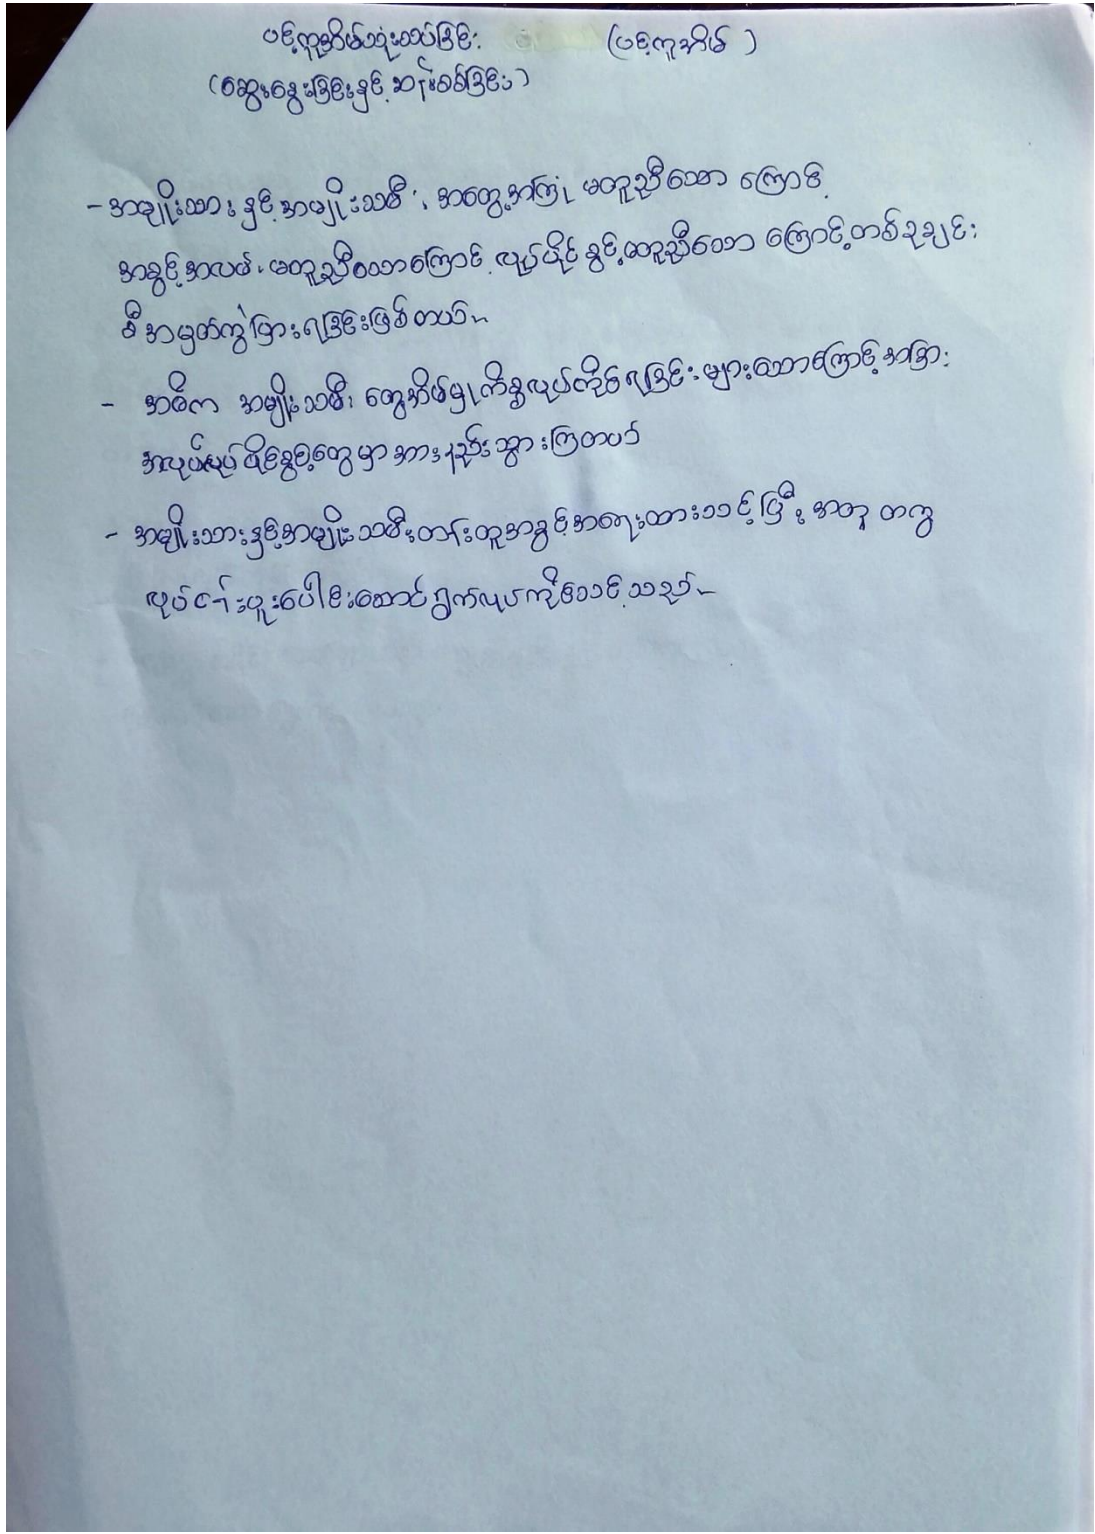 ပင့်ကူအိမ်သုံးသပ်ခြင်း (ပင့်ကူအိမ်)
(ဆွေးနွေးခြင်းနှင့် ဆန်းစစ်ခြင်း)
- အမျိုးသား နှင့် အမျိုးသမီး အတွေ့အကြုံ မတူညီသော ကြောင့်
အခွင့်အလမ်း မတူညီသောကြောင့် လုပ်ပိုင်ခွင့်မတူညီသော ကြောင့် တစ်ခုချင်း
စီအမှတ်ကွဲပြားရခြင်းဖြစ်တယ်။
- အဓိက အမျိုးသမီး တွေအိမ်မှုကိစ္စလုပ်ကိုင်ရခြင်းများသောကြောင့် အခြား
အလုပ်လုပ်ပိုင်ခွင့်တွေ မှာ အားနည်းသွားကြတယ်
- အမျိုးသားနှင့်အမျိုးသမီးတန်းတူအခွင့်အရေးထားသင့်ပြီး အတူ တကွ
လုပ်ငန်းပူးပေါင်းဆောင်ရွက်လုပ်ကိုင်သင့်သည်။